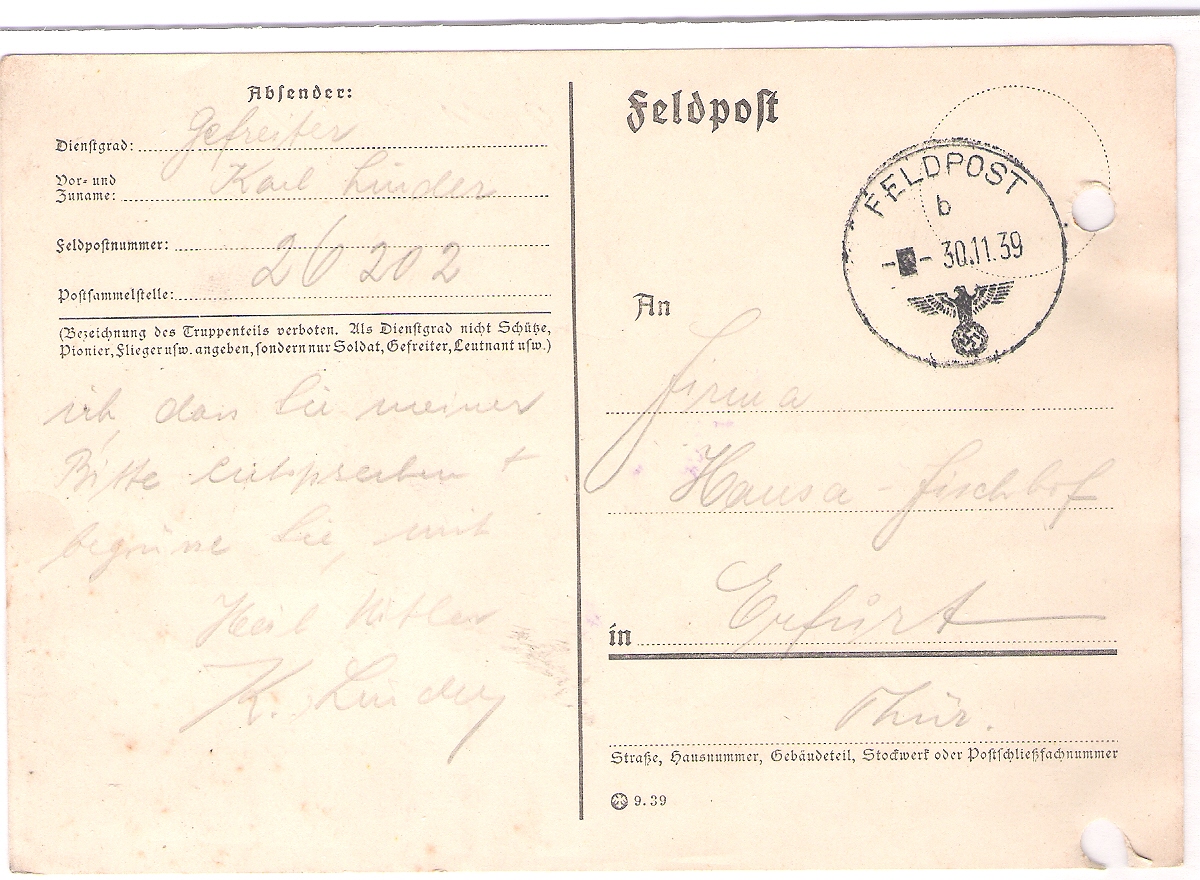 Absender:
Dienstgrad: Gefreiter
Vor- und
Zuname: Karl Linder
Feldpostnummer: 26 202
Postsammelstelle:
(Bezeichnung des Truppenteils verboten. Als Dienstgrad nicht Schütze,
Pionier, Flieger usw. angeben, sondern nur Soldat, Gefreiter, Leutnant usw.)
ich, dass Sie meiner
Bitte entsprechen +
begrüsse Sie, mit
Heil Hitler
K. Linder
Feldpost
FELDPOST
b
- - 30.11.39
An
Firma
Hansa - Fischhof
in Erfurt
Thür.
Straße, Hausnummer, Gebäudeteil, Stockwerk oder Postschließfachnummer
9.39